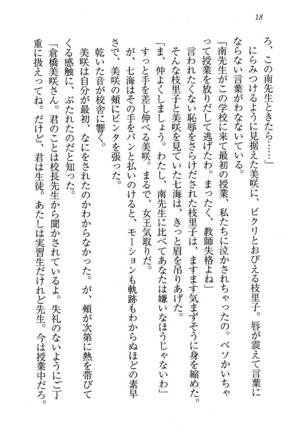 18
ろ、この南先生ときたら……」
にらみつけるように見据えた美咲に、ビクリとおびえる枝里子。唇が震えて言葉に
ならない言葉がわなないている。
「南先生がこの学校に来て最初の授業、私たちに泣かされちゃったの。ベソかいちゃ
って授業を放りだして逃げたわ。まったく、教師失格よね」
とられたくない恥辱をさらけだされた枝里子は、ますます気まずそうに身を縮めた。
そんな枝里子と美咲を見つめていた七海は、きっと眉を吊りあげた。
「ま、仲よくしましょう。南先生に比べてあなたは嫌いなほうじゃないわ」
すっと手を差し伸べる美咲。まるで、女王気取りだ。
が、七海はその手をパンと払いのけると、モーションも軌跡もわからぬほどの素早
さで、美咲の頬にビンタを張った。
乾いた音が校舎に響く。
美咲は自分が最初、なにをされたのかわからなかった。が、頬が次第に熱を帯びて
くる感触に、ぶたれたのだと知った。
「倉橋美咲さん。君のことは校長先生から聞かされているよ。失礼のないようにご丁
重に扱ってね。だけど、君は生徒。あたしは実習生だけれど先生。今は授業中だろ。